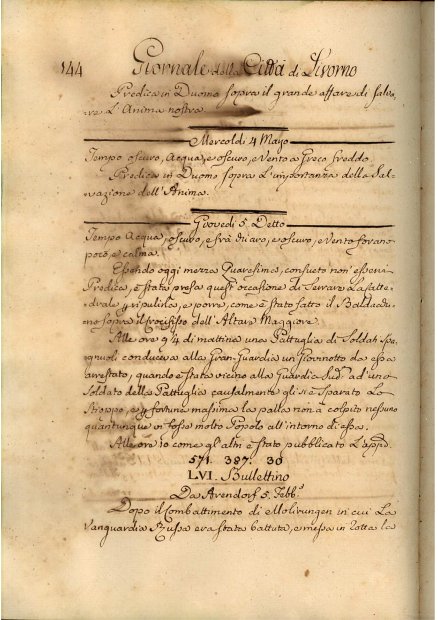 144 Giornale della Città di Livorno
Predica in Duomo sopra il grande affare di salva,
are l'Anima nostra.
Mercoldì 4 Marzo
Tempo oscuro, Acqua, e oscuro, e Vento a Greco freddo.
Predica in Duomo sopra l'importanza della Sal-
vazione dell'Anima.
Giovedì 5. Detto
Tempo Acqua, oscuro, e frà chiaro, e oscuro, e Vento forano
poco, e calma.
Essendo oggi mezza Quaresima, consueto non esservi
Predica, è stata presa quest'occasione di serrare la Catte-
drale per ripulirla, e porre, come è stato fatto il Baldacchi-
no sopra il Crocifisso dell'Altare Maggiore.
Alle ore 9¼ di mattina una Pattuglia di Soldati Spa-
gnuoli conduceva alla Gran-Guardia un Giovinotto da essa
arrestato, quando è stata vicino alla Guardia Sudª ad uno
Soldato della Pattuglia casualmente gli si è sparato lo
Stioppo, e per fortuna massima la palla non à colpito nessuno
quantunque vi fosse molto Popolo all'intorno di essa.
Alle ore 10 come gl'altri è stato pubblicato
571. 387. 30
LVI. Bullettino
Da Arendorf 5. Febbº
Dopo il Combattimento di Molirungen in cui la
Vanguardia Russa era stata battuta, e messa in rotta la